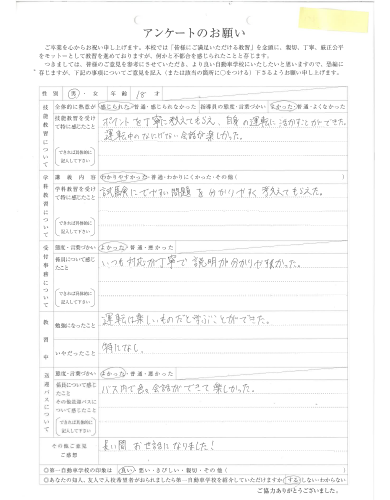 アンケートのお願い
ご卒業を心からお祝い申し上げます。本校では「皆様にご満足いただける教習」を念頭に、親切、丁寧、厳正公平
をモットーとして教習を進めておりますが、何かと不都合を感じられたことと存じます。
つきましては、皆様のご意見を参考にさせていただき、より良い自動車学校にいたしたいと思いますので、
ますが、下記の事項についてご意見を記入(または該当の箇所に〇をつける)下さるようお願い申し上げます。
性別 男・女 年齢 18才
技能教習について
全体的に熱意が 感じられた・普通・感じられなかった 指導員の態度・言葉づかい よかった・普通・よくなかった
技能教習を受けて特に感じたこと
ポイントを丁寧に教えてもらえ、自身の運転に活かすことができた。
運転中のなにげない会話が楽しかった。
できれば具体的に記入して下さい
学科教習について
講義内容 わかりやすかった・普通・わかりにくかった・その他( )
学科教習を受けて特に感じたこと
試験にでやすい問題を分かりやすく教えてもらえた。
できれば具体的に記入して下さい
受付事務について
態度・言葉づかい よかった・普通・悪かった
係員について感じたこと
いつも対応が丁寧で説明が分かりやすかった。
できれば具体的に記入して下さい
教習中
勉強になったこと
運転は楽しいものだと学ぶことができた。
いやだったこと
特になし。
送迎バスについて
態度・言葉づかい よかった・普通・悪かった
係員について感じたこと
その他送迎バスについて感じたこと
バス内で色々会話ができて楽しかった。
できれば具体的に記入して下さい
その他ご意見ご感想
長い間お世話になりました!
◎第一自動車学校の印象は 良い・悪い・きびしい・親切・その他( )
◎あなたの知人、友人で入校希望者がおられましたら第一自動車学校を紹介していただけますか する・しない・わからない
ご協力ありがとうございました。